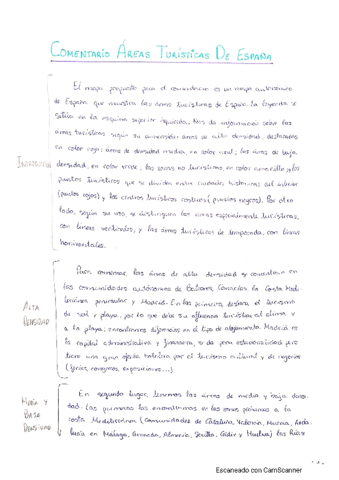 COMENTARIO ÁREAS TURÍSTICAS DE ESPAÑA
El mapa propuesto para el comentario es un mapa autonómico
de España que muestra las áreas turísticas de España. La leyenda se
sitúa en la esquina superior izquierda. Nos da información sobre las
áreas turísticas según su dimensión: áreas de alta densidad, destacadas
en color rojo; áreas de densidad media, en color azul; las áreas de baja
densidad, en color verde; las zonas no turísticas, en color amarillo y los
puntos turísticos que se dividen entre ciudades históricas del interior
(puntos rojos) y los centros turísticos costeros (puntos negros). Por otro
lado, según su uso, se distinguen las zonas especialmente turísticas,
con líneas verticales, y las áreas turísticas de temporada, con líneas
horizontales.
INTRODUCCIÓN
Para comenzar, las áreas de alta densidad se concentran en
las comunidades autónomas de Baleares, Canarias, la Costa Medi
terránea peninsular y Madrid. En las primeras, destaca el turismo
de sol y playa, por lo que debe su afluencia turística al clima y
a la playa; encontramos diferencias en el tipo de alojamiento. Madrid es
la capital administrativa y financiera, si de poca estacionalidad pero
tiene una gran oferta hotelera por el turismo cultural y de negocios
(ferias, congresos, exposiciones...)
ALTA
DENSIDAD
En segundo lugar, tenemos las áreas de media y baja densi-
dad. Las primeras las encontramos en las zonas próximas a la
costa Mediterránea (Comunidades de Cataluña, Valencia, Murcia, Anda-
lucía en Málaga, Granada, Almería, Sevilla, Cádiz y Huelva) las Rías
MEDIA Y
BAJA
DENSIDAD
Escaneado con CamScanner